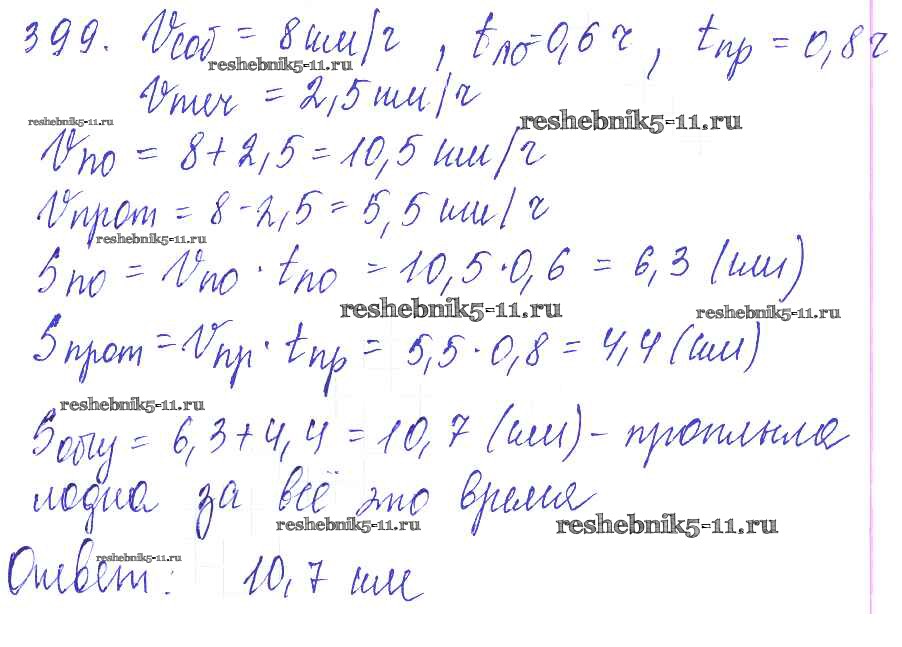 399. Vсоб = 8 км/ч, tпо = 0,6 ч, tпр = 0,8 ч
reshebnik5-11.ru
Vтеч = 2,5 км/ч
reshebnik5-11.ru reshebnik5-11.ru
Vпо = 8 + 2,5 = 10,5 км/ч
Vпрот = 8 - 2,5 = 5,5 км/ч
reshebnik5-11.ru
Sпо = Vпо · tпо = 10,5 · 0,6 = 6,3 (км)
reshebnik5-11.ru reshebnik5-11.ru
Sпрот = Vпр · tпр = 5,5 · 0,8 = 4,4 (км)
reshebnik5-11.ru
Sобщ = 6,3 + 4,4 = 10,7 (км) - проплыла
лодка за всё это время
reshebnik5-11.ru reshebnik5-11.ru
reshebnik5-11.ru
Ответ: 10,7 км